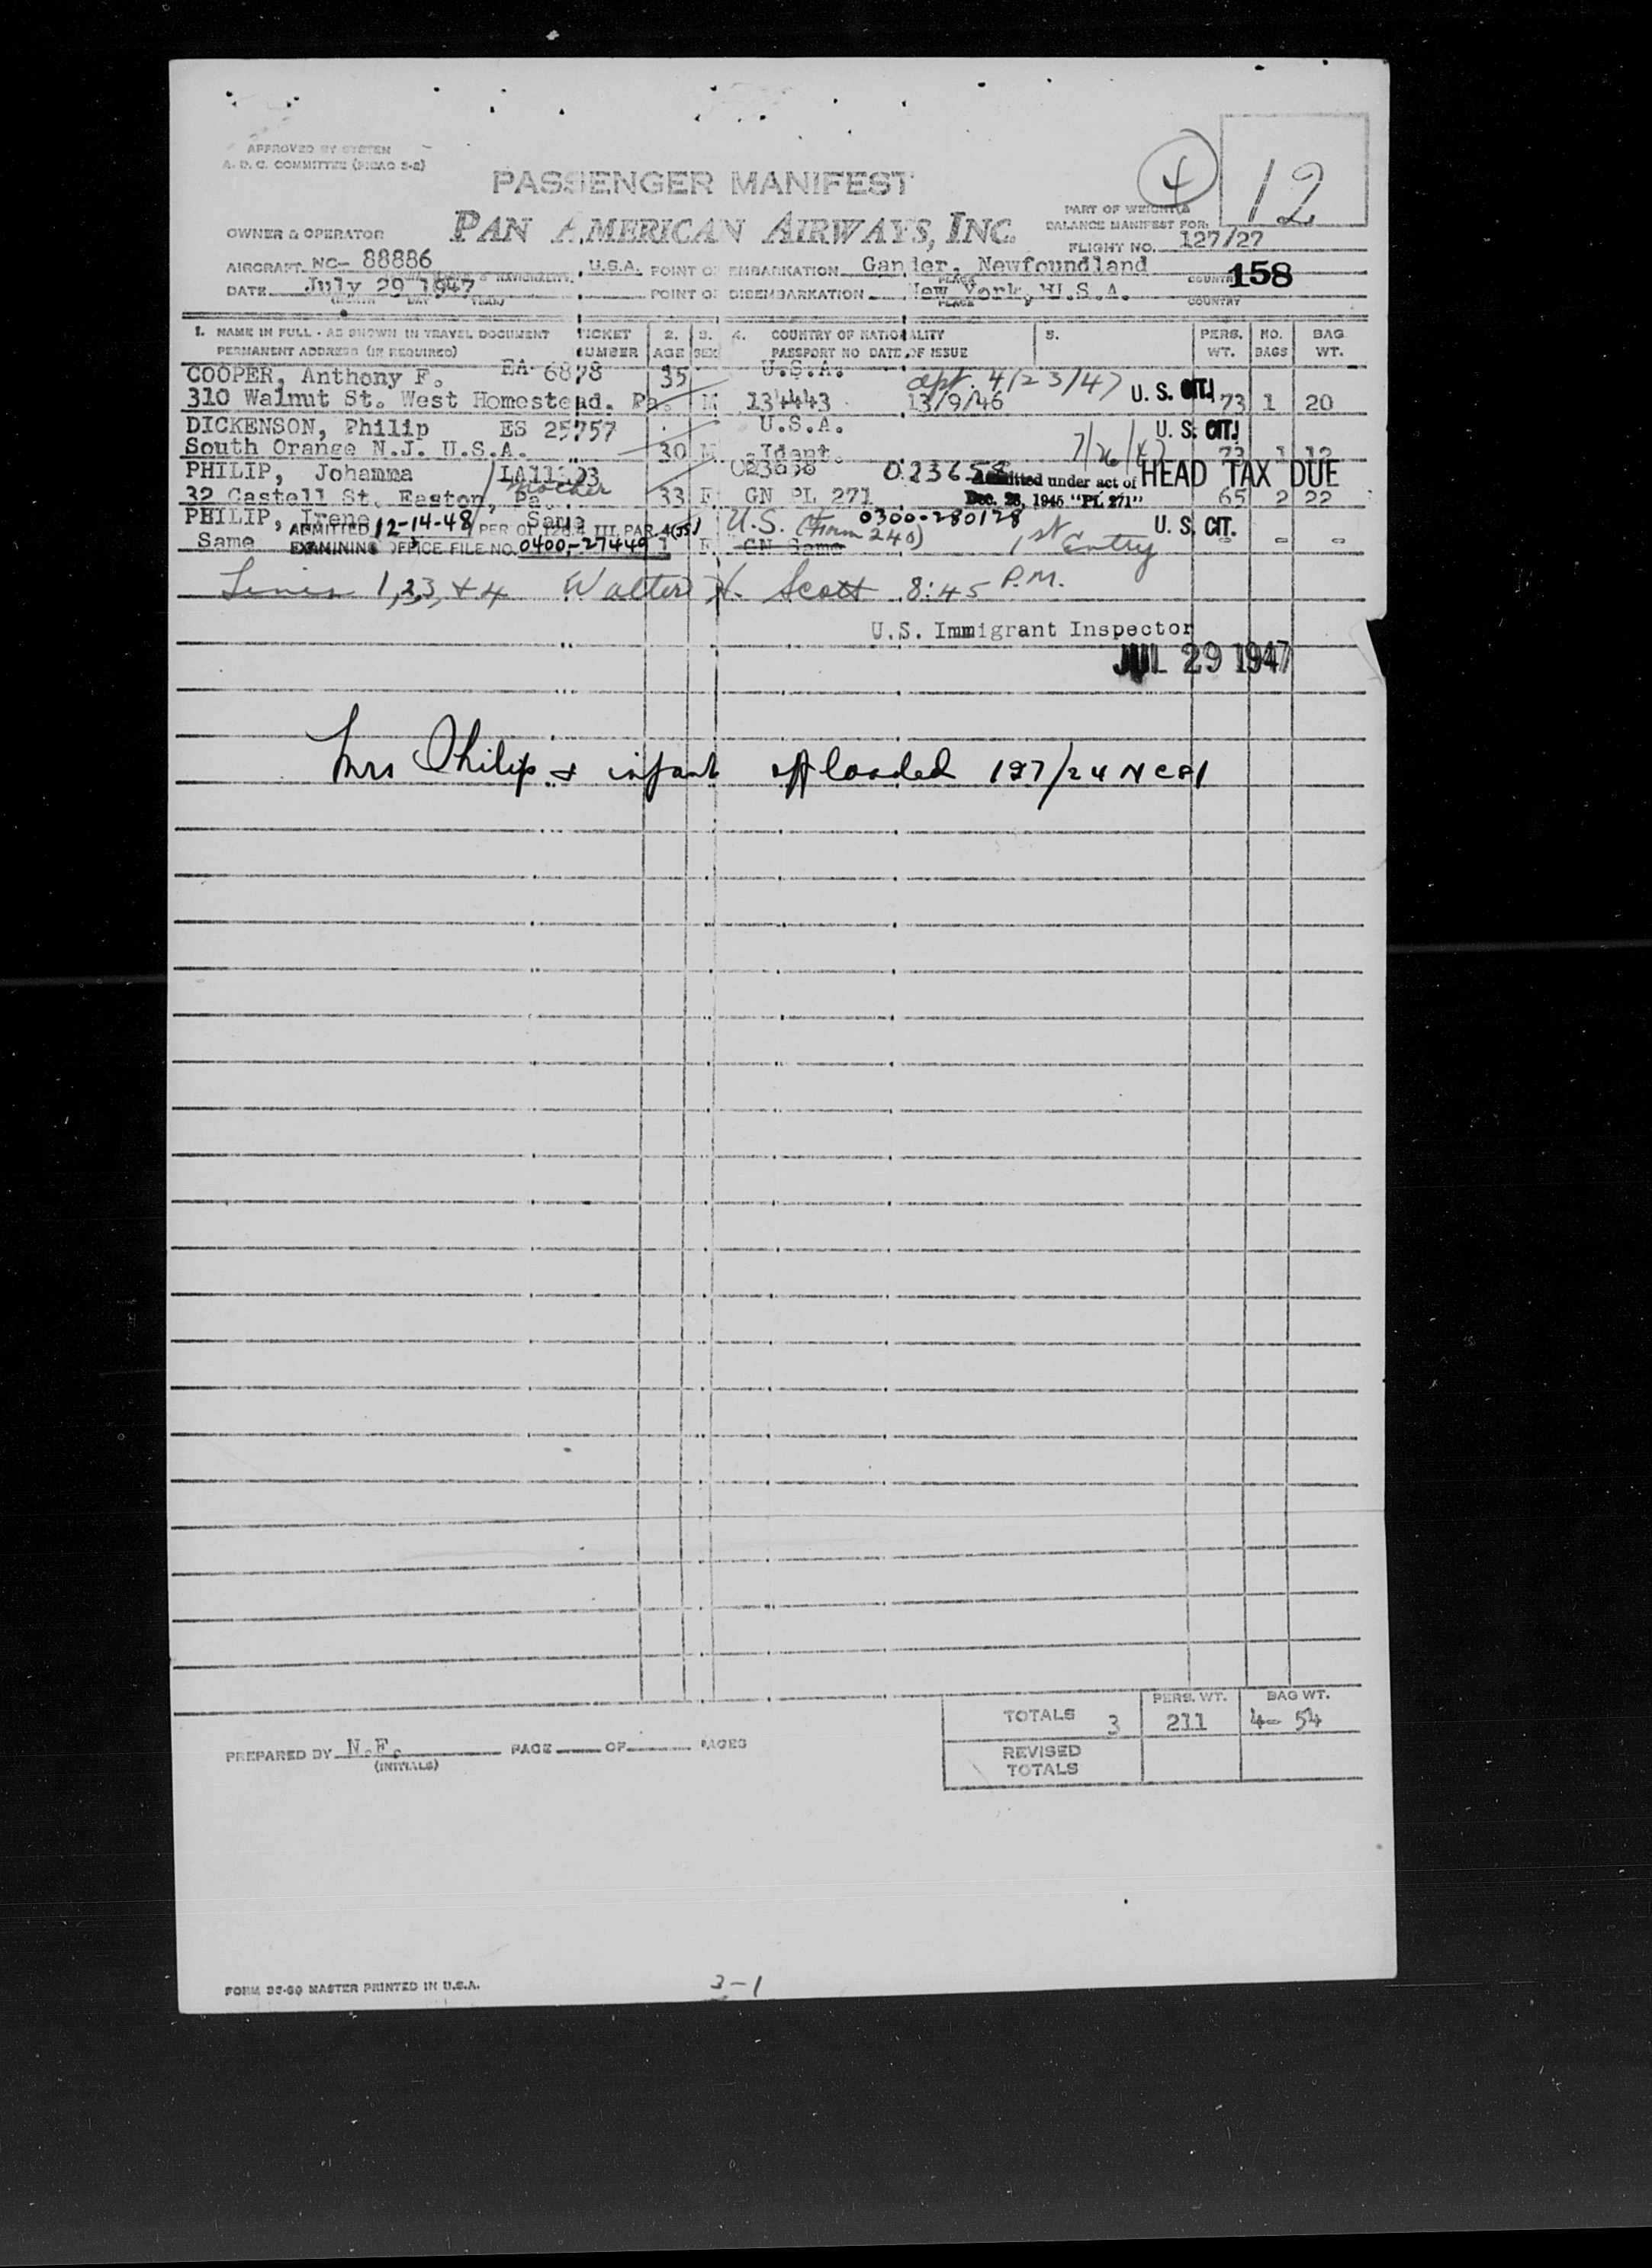 APPROVED BY SYSTEM
A. D. C. COMMITTEE (PICAO S-2)
PASSENGER MANIFEST
4
12
PAN AMERICAN AIRWAYS, INC.
PART OF WEIGHT &
BALANCE MANIFEST FOR:
OWNER & OPERATOR
FLIGHT NO. 127/27
AIRCRAFT NC- 88886 U.S.A. POINT OF EMBARKATION Gander, Newfoundland
PLACE COUNTRY 158
DATE July 29 1947 POINT OF DISEMBARKATION New York, U.S.A.
PLACE COUNTRY
1. NAME IN FULL - AS SHOWN IN TRAVEL DOCUMENT TICKET 2. 3. 4. COUNTRY OF NATIONALITY 5. PERS. NO. BAG
PERMANENT ADDRESS (IF REQUIRED) NUMBER AGE SEX PASSPORT NO DATE OF ISSUE WT. BAGS WT.
COOPER, Anthony F. EA 6878 35 U.S.A. dpt. 4/23/47 U. S. CIT.
310 Walnut St. West Homestead. Pa. M 134443 13/9/46 73 1 20
DICKENSON, Philip ES 25757 U.S.A. U. S. CIT.
South Orange N.J. U.S.A. 30 M Ident. 7/26/47 73 1 12
PHILIP, Johanna mother 023658 023658 Admitted under act of HEAD TAX DUE
32 Castell St. Easton, Pa. 33 F GN PL 271 Dec. 28, 1945 "PL 271" 65 2 22
PHILIP, Irene Same U.S. (Form 240) 0300-280128 U. S. CIT.
ADMITTED 12-14-48 PER
Same EXAMINING OFFICE FILE NO. 0400-27449 F GN Same 1st Entry - - -
Lines 1,2,3, & 4 Walter H. Scott 8:45 P.M.
U.S. Immigrant Inspector
JUL 29 1947
Mrs Philip & infant offloaded 127/24
TOTALS 3 PERS. WT. 211 BAG WT. 4- 54
PREPARED BY N.F. (INITIALS) PAGE OF PAGES
REVISED
TOTALS
FORM MASTER PRINTED IN U.S.A.
3-1